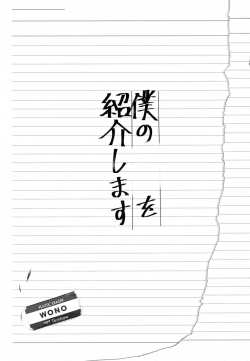 僕の　を
紹介します
WONO